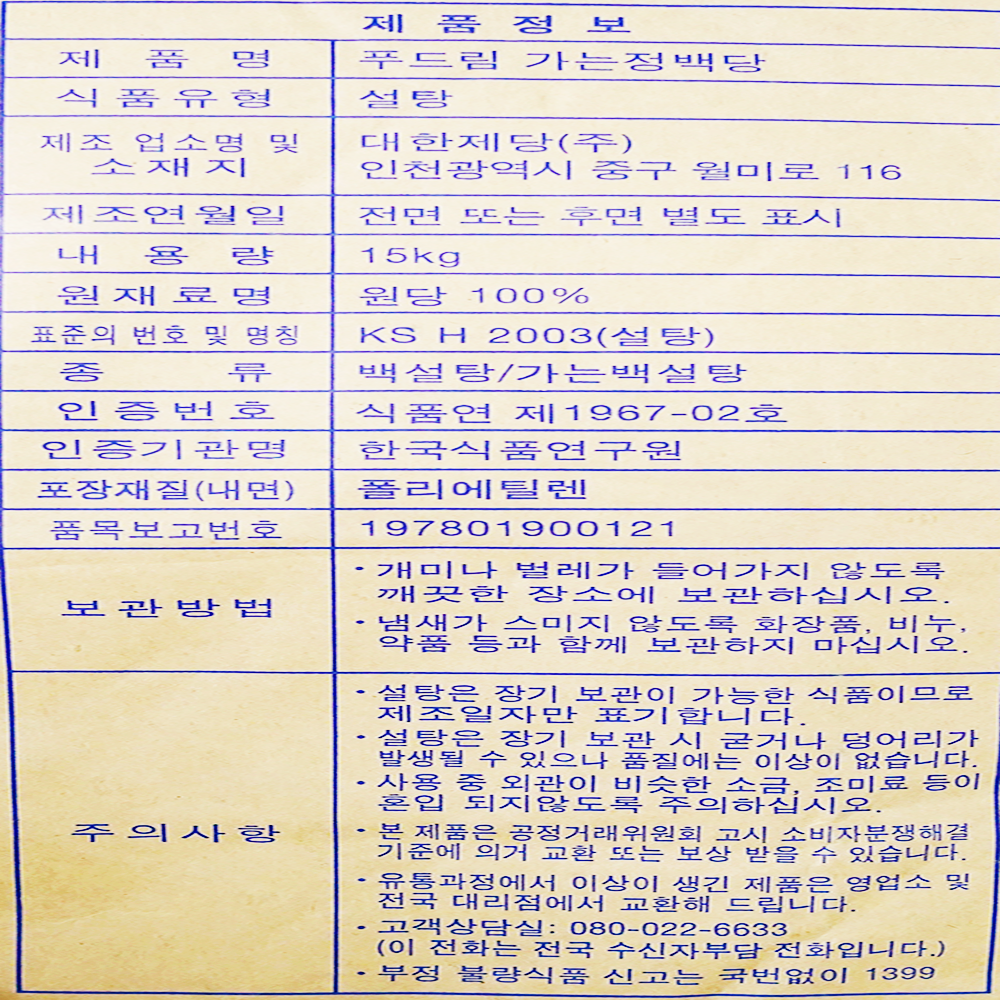 제 품 정 보
제 품 명 푸드림 가는정백당
식품유형 설탕
제조 업소명 및 대한제당(주)
소 재 지 인천광역시 중구 월미로 116
제조연월일 전면 또는 후면 별도 표시
내 용 량 15kg
원재료명 원당 100%
표준의 번호 및 명칭 KS H 2003(설탕)
종 류 백설탕/가는백설탕
인증번호 식품연 제1967-02호
인증기관명 한국식품연구원
포장재질(내면) 폴리에틸렌
품목보고번호 197801900121
보관방법
• 개미나 벌레가 들어가지 않도록
깨끗한 장소에 보관하십시오.
• 냄새가 스미지 않도록 화장품, 비누,
약품 등과 함께 보관하지 마십시오.
주의사항
• 설탕은 장기 보관이 가능한 식품이므로
제조일자만 표기합니다.
• 설탕은 장기 보관 시 굳거나 덩어리가
발생될 수 있으나 품질에는 이상이 없습니다.
• 사용 중 외관이 비슷한 소금, 조미료 등이
혼입 되지않도록 주의하십시오.
• 본 제품은 공정거래위원회 고시 소비자분쟁해결
기준에 의거 교환 또는 보상 받을 수 있습니다.
• 유통과정에서 이상이 생긴 제품은 영업소 및
전국 대리점에서 교환해 드립니다.
• 고객상담실: 080-022-6633
(이 전화는 전국 수신자부담 전화입니다.)
• 부정 불량식품 신고는 국번없이 1399